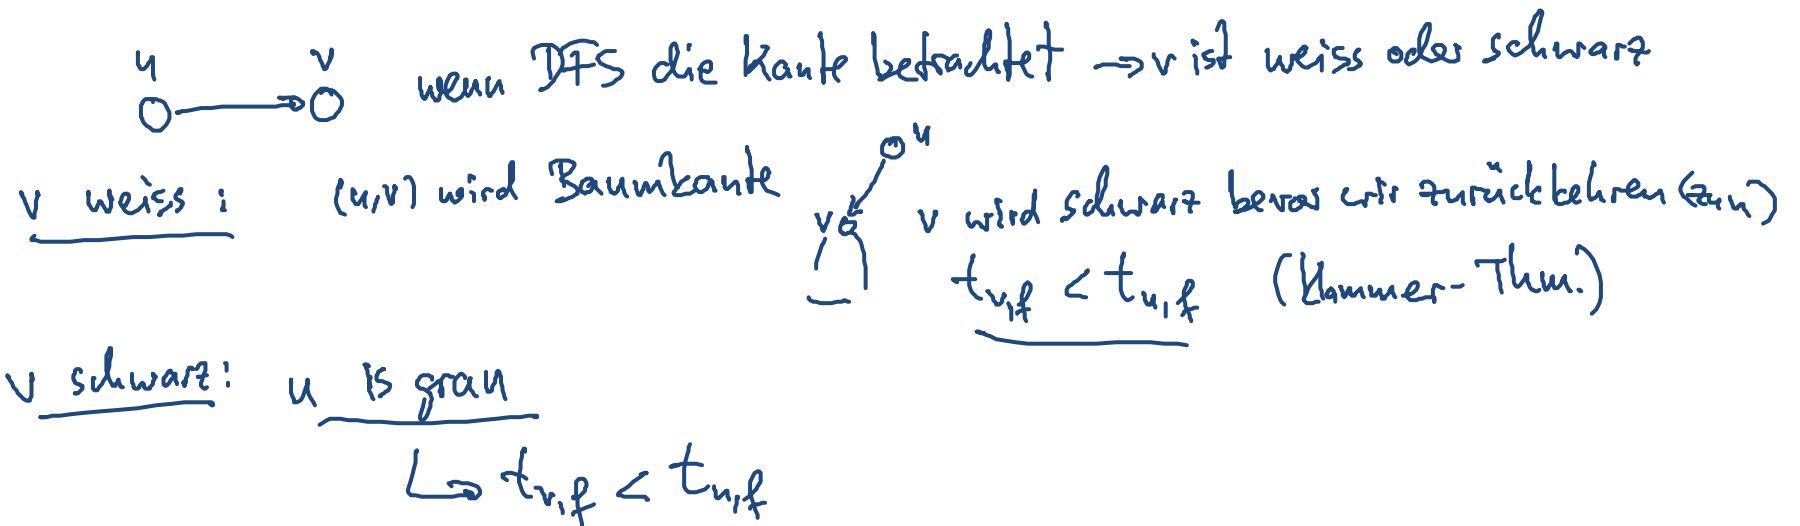 u v wenn DFS die Kante betrachtet → v ist weiss oder schwarz
u
v weiss: (u,v) wird Baumkante v v wird schwarz bevor wir zurückkehren (zu u)
t_{v,f} < t_{u,f} (Klammer-Thm.)
v schwarz: u is grau
↳ t_{v,f} < t_{u,f}